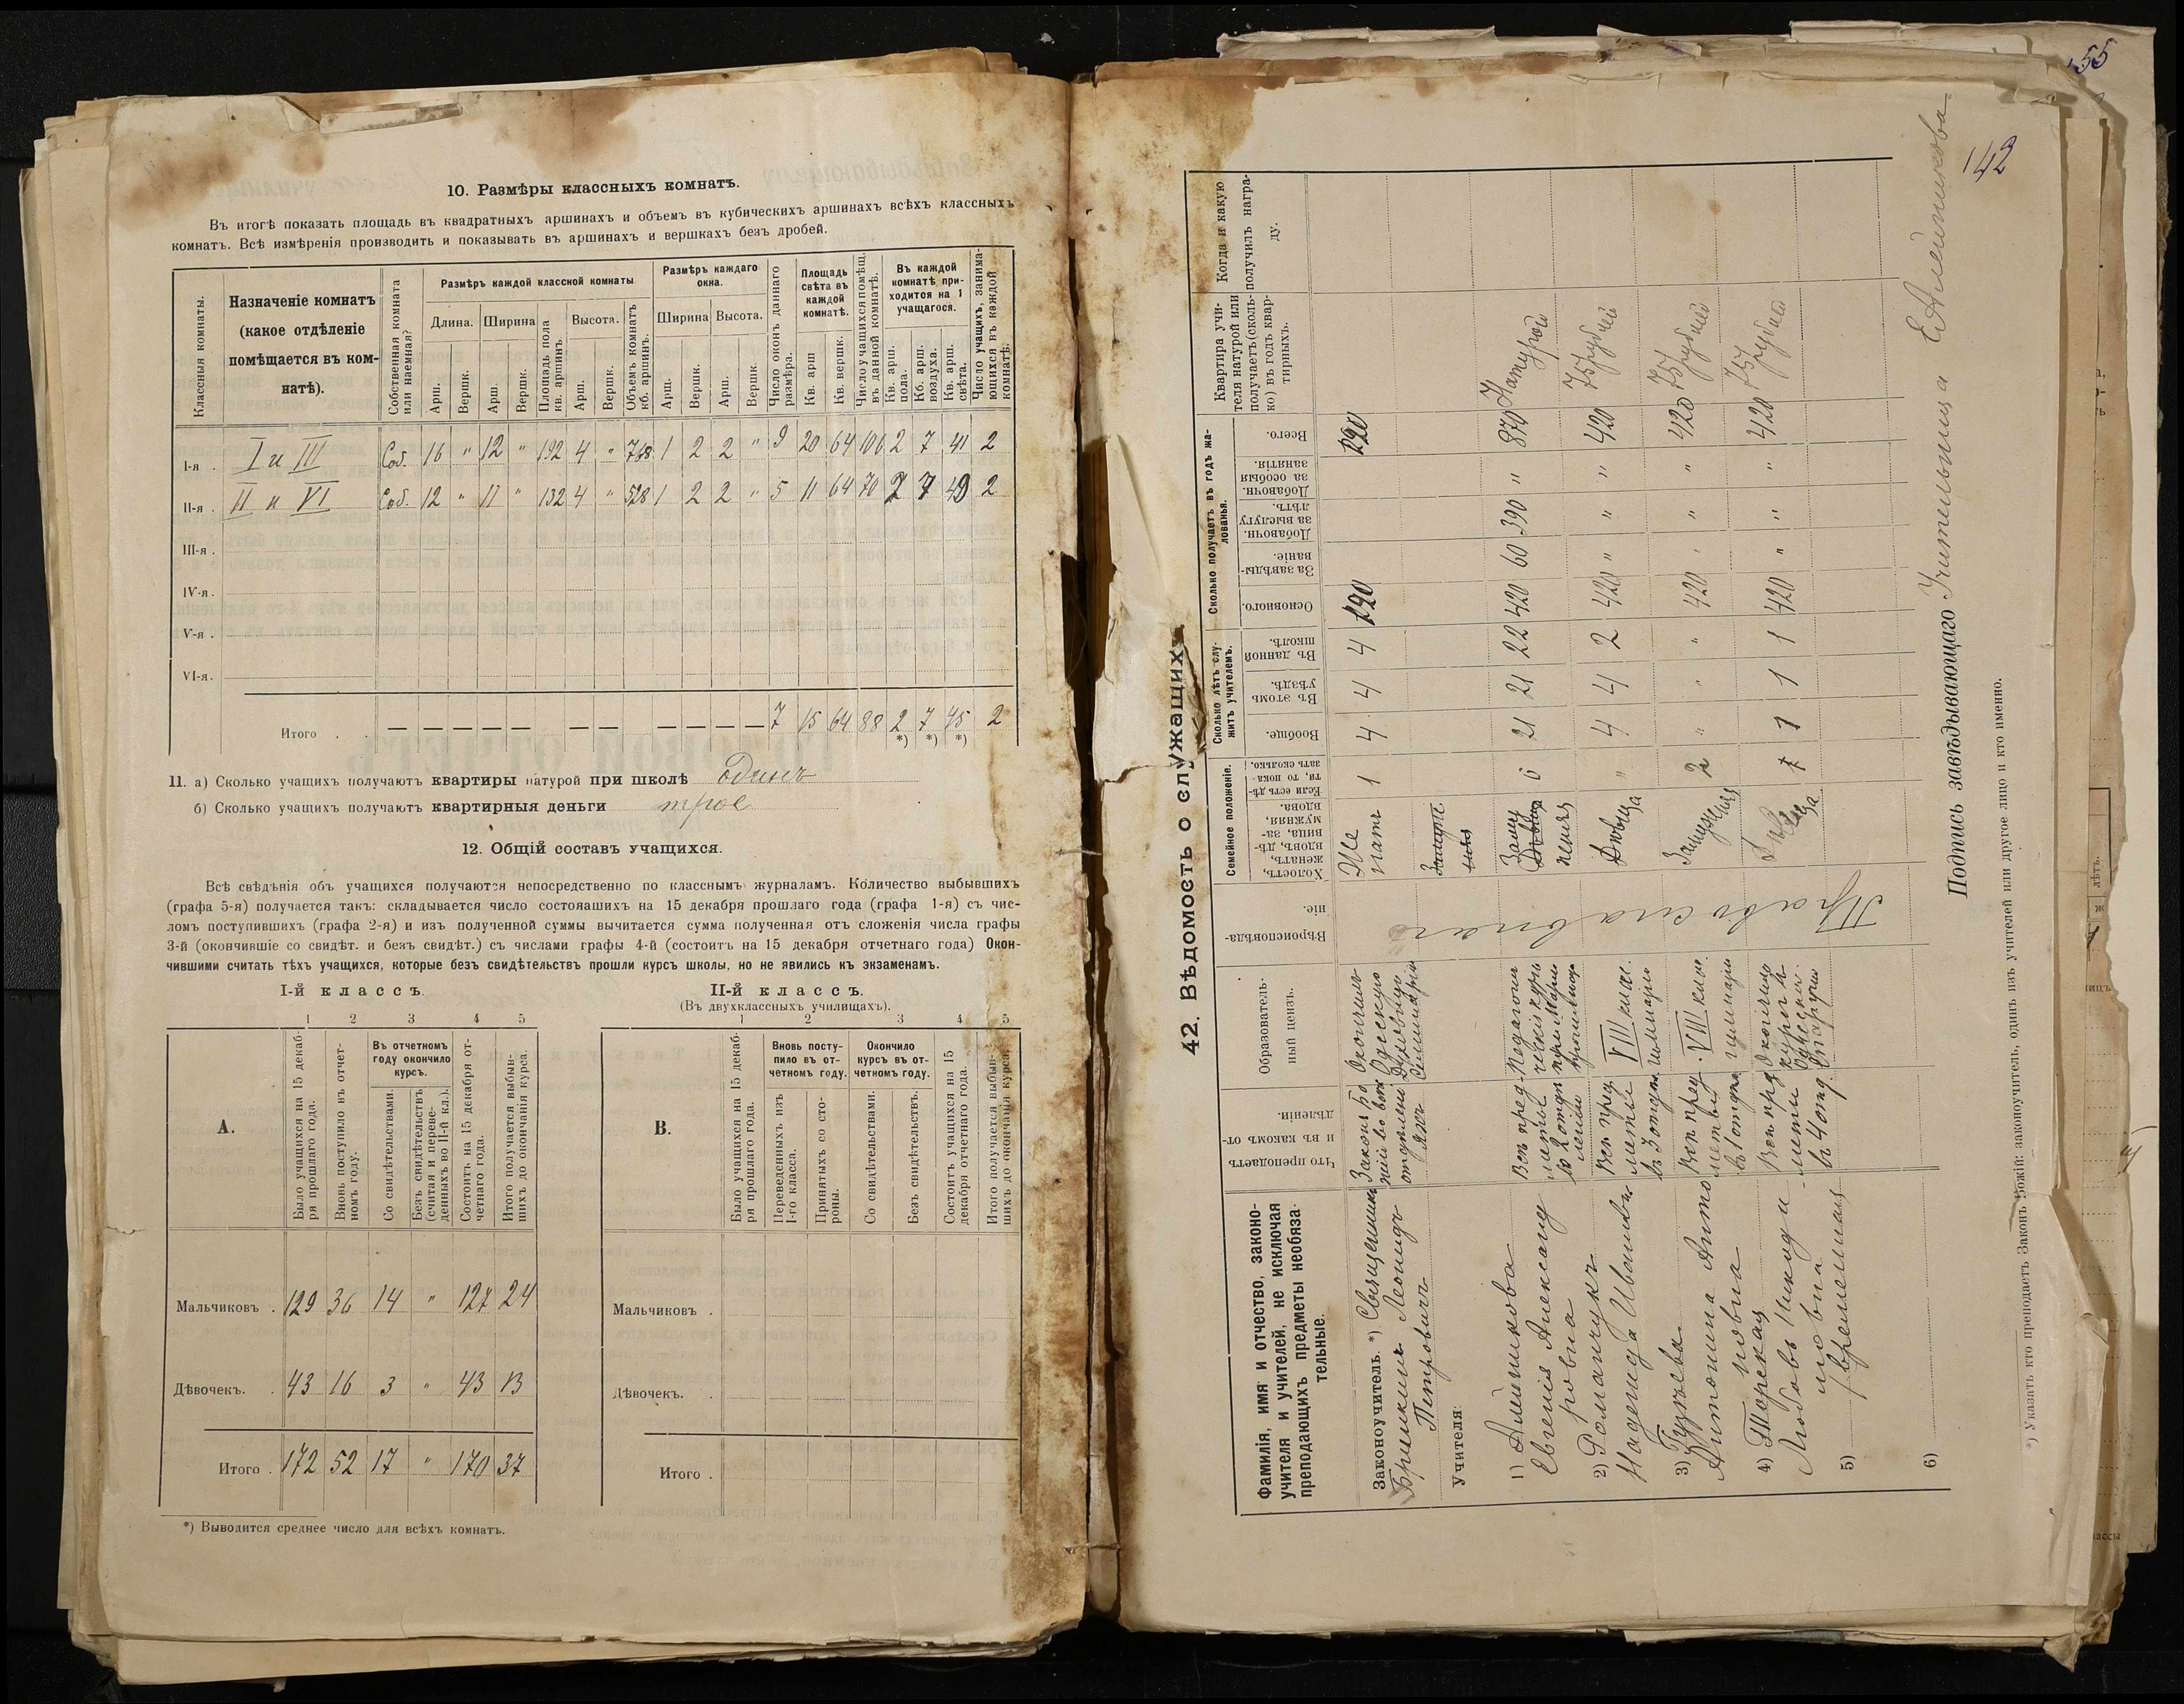 10. Размѣры классныхъ комнатъ.
Въ итогѣ показать площадь въ квадратныхъ аршинахъ и объемъ въ кубическихъ аршинахъ всѣхъ классныхъ
комнатъ. Всѣ измѣренія производить и показывать въ аршинахъ и вершкахъ безъ дробей.
Классныя комнаты.
Назначеніе комнатъ
(какое отдѣленіе
помѣщается въ ком-
натѣ).
Собственная комната
или наемная?
Размѣръ каждой классной комнаты
Длина. Ширина Высота.
Арш. Вершк. Арш. Вершк.
Площадь пола
кв. аршинъ.
Арш. Вершк.
Объемъ комнатъ
кб. аршинъ.
Размѣръ каждаго
окна.
Ширина Высота.
Арш. Вершк. Арш. Вершк.
Число оконъ даннаго
размѣра.
Площадь
свѣта въ
каждой
комнатѣ.
Кв. арш Кв. вершк.
Число учащихся помѣщ.
въ данной комнатѣ.
Въ каждой
комнатѣ при-
ходится на 1
учащагося.
Кв. арш.
пола.
Кб. арш.
воздуха.
Кв. арш.
свѣта.
Число учащихъ, занима-
ющихся въ каждой
комнатѣ.
I-я . I и III Соб. 16 " 12 " 192 4 " 768 1 2 2 " 9 20 64 106 2 7 41 2
II-я . II и VI Соб. 12 " 11 " 132 4 " 528 1 2 2 " 5 11 64 70 2 7 49 2
III-я .
IV-я .
V-я .
VI-я .
Итого . . — — — — — — — — — — 7 15 64 88 2 7 45 2
*) *) *)
11. а) Сколько учащихъ получаютъ квартиры натурой при школѣ одинъ
б) Сколько учащихъ получаютъ квартирныя деньги трое
12. Общій составъ учащихся.
Всѣ свѣдѣнія объ учащихся получаются непосредственно по класснымъ журналамъ. Количество выбывшихъ
(графа 5-я) получается такъ: складывается число состоявшихъ на 15 декабря прошлаго года (графа 1-я) съ чис-
ломъ поступившихъ (графа 2-я) и изъ полученной суммы вычитается сумма полученная отъ сложенія числа графы
3-й (окончившіе со свидѣт. и безъ свидѣт.) съ числами графы 4-й (состоитъ на 15 декабря отчетнаго года) Окон-
чившими считать тѣхъ учащихся, которые безъ свидѣтельствъ прошли курсъ школы, но не явились къ экзаменамъ.
I-й классъ.
1 2 3 4 5
А.
Было учащихся на 15 декаб-
ря прошлаго года.
Вновь поступило въ отчет-
номъ году.
Въ отчетномъ
году окончило
курсъ.
Со свидѣтельствами.
Безъ свидѣтельствъ
(считая и переве-
денныхъ во II-й кл.).
Состоитъ на 15 декабря от-
четнаго года.
Итого получается выбыв-
шихъ до окончанія курса.
Мальчиковъ . 129 36 14 " 127 24
Дѣвочекъ. . 43 16 3 " 43 13
Итого . 172 52 17 " 170 37
II-й классъ.
(Въ двухклассныхъ училищахъ).
1 2 3 4 5
В.
Было учащихся на 15 декаб-
ря прошлаго года.
Вновь посту-
пило въ от-
четномъ году.
Переведенныхъ изъ
I-го класса.
Принятыхъ со сто-
роны.
Окончило
курсъ въ от-
четномъ году.
Со свидѣтельствами.
Безъ свидѣтельствъ.
Состоитъ учащихся на 15
декабря отчетнаго года.
Итого получается выбыв-
шихъ до окончанія курса.
Мальчиковъ .
Дѣвочекъ. .
Итого .
*) Выводится среднее число для всѣхъ комнатъ.
55
142
42. Вѣдомость о служащихъ.
Фамилія, имя и отчество, законо-
учителя и учителей, не исключая
преподающихъ предметы необяза-
тельные.
Что преподаетъ
и въ какомъ от-
дѣленіи.
Образователь-
ный цензъ.
Вѣроисповѣда-
ніе.
Семейное положеніе.
Холостъ,
женатъ,
вдовъ, дѣ-
вица, за-
мужняя,
вдова.
Если есть дѣ-
ти, то пока-
зать сколько.
Сколько лѣтъ слу-
житъ учителемъ.
Вообще.
Въ этомъ
уѣздѣ.
Въ данной
школѣ.
Сколько получаетъ въ годъ жа-
лованья.
Основного.
За завѣды-
ваніе.
Добавочн.
за выслугу
лѣтъ.
Добавочн.
за особыя
занятія.
Всего.
Квартира учи-
теля натурой или
получаетъ (сколь-
ко) въ годъ квар-
тирныхъ.
Когда и какую
получилъ награ-
ду.
Законоучитель. *) Священникъ
Леонидъ
Петровичъ
Законъ Бо
жій во всѣхъ
Окончилъ
Одесскую
Духовную
Семинарію
Православное
Же
натъ
1 4 4 4 120 120
Учителя:
1) Алейникова
Евгенія Александ
ровна
Всѣ пред-
меты
во 2 отдѣ
леніи
Педагоги
ческіе курсы
Заму
21 21 22 420 60 390 " 870 Натурой
2) Романчукъ
Надежда Ивановна
Всѣ пред
меты
въ 3 отдѣл.
VIII клас.
гимназіи
Дѣвица
" 4 4 2 420 " " " 420 75 рублей
3)
Антонина Анто
новна
Всѣ пред
меты
въ 1 отдѣл
VIII клас.
гимназіи
Замужняя
2 " " " 420 " " " 420 75 рублей
4)
Любовь
временная
Всѣ пред
меты
въ 4 отд.
Окончила
курсы
Дѣвица
1 1 1 420 " " " 420 75 рублей
5)
6)
Подпись завѣдывающаго Учительница Е Алейникова
*) Указать кто преподаетъ Законъ Божій: законоучитель, одинъ изъ учителей или другое лицо и кто именно.